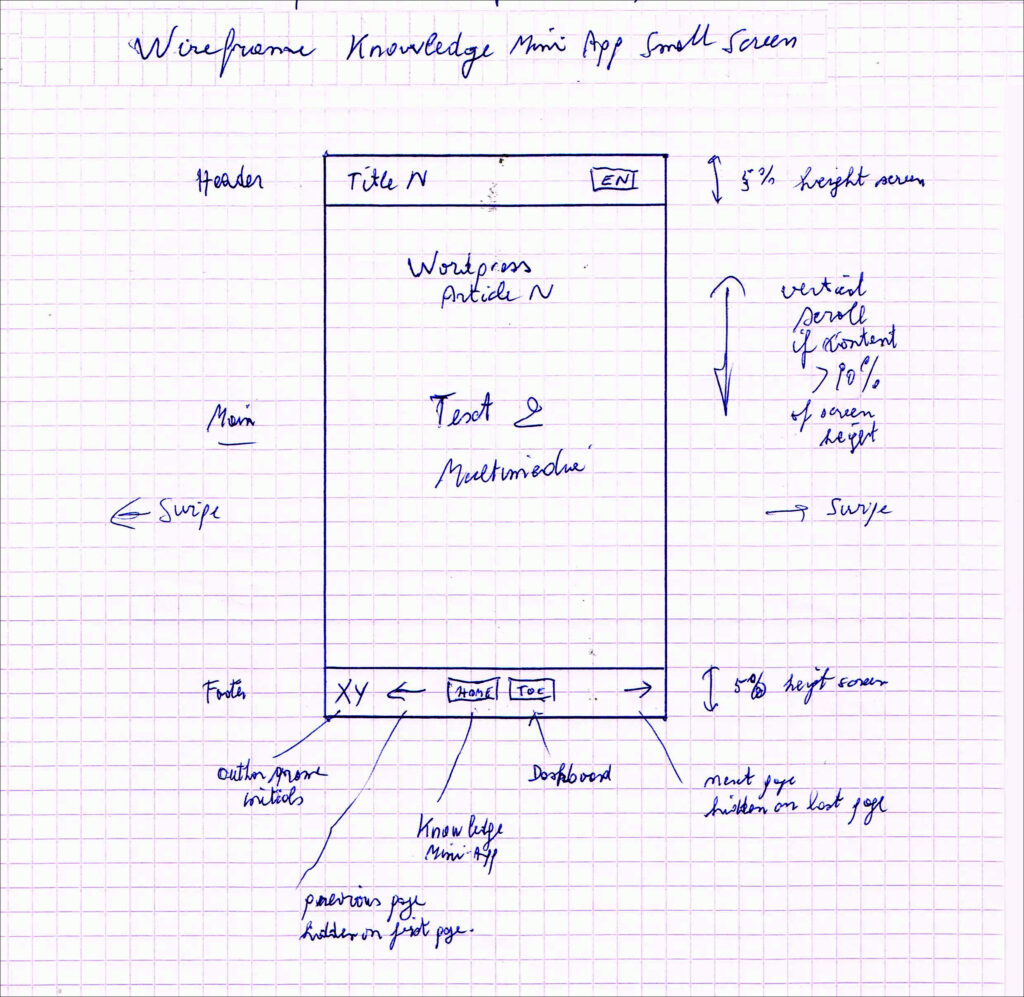 Wireframe Knowledge Mini App Small Screen
Header
Title N
EN
5% height screen
Wordpress
Article N
vertical
scroll
if content
>90%
of screen
height
Main
Text &
Multimedia
← Swipe
→ Swipe
Footer
XY ← HOME TOC →
5% height screen
author name
initials
Dashboard
next page
hidden on last page
Knowledge
Mini-App
previous page
hidden on first page.